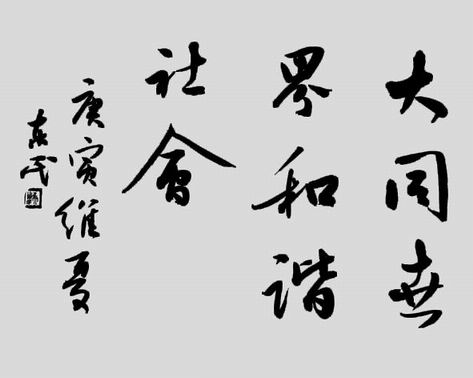 大同世
界和谐
社會
庚寅維夏